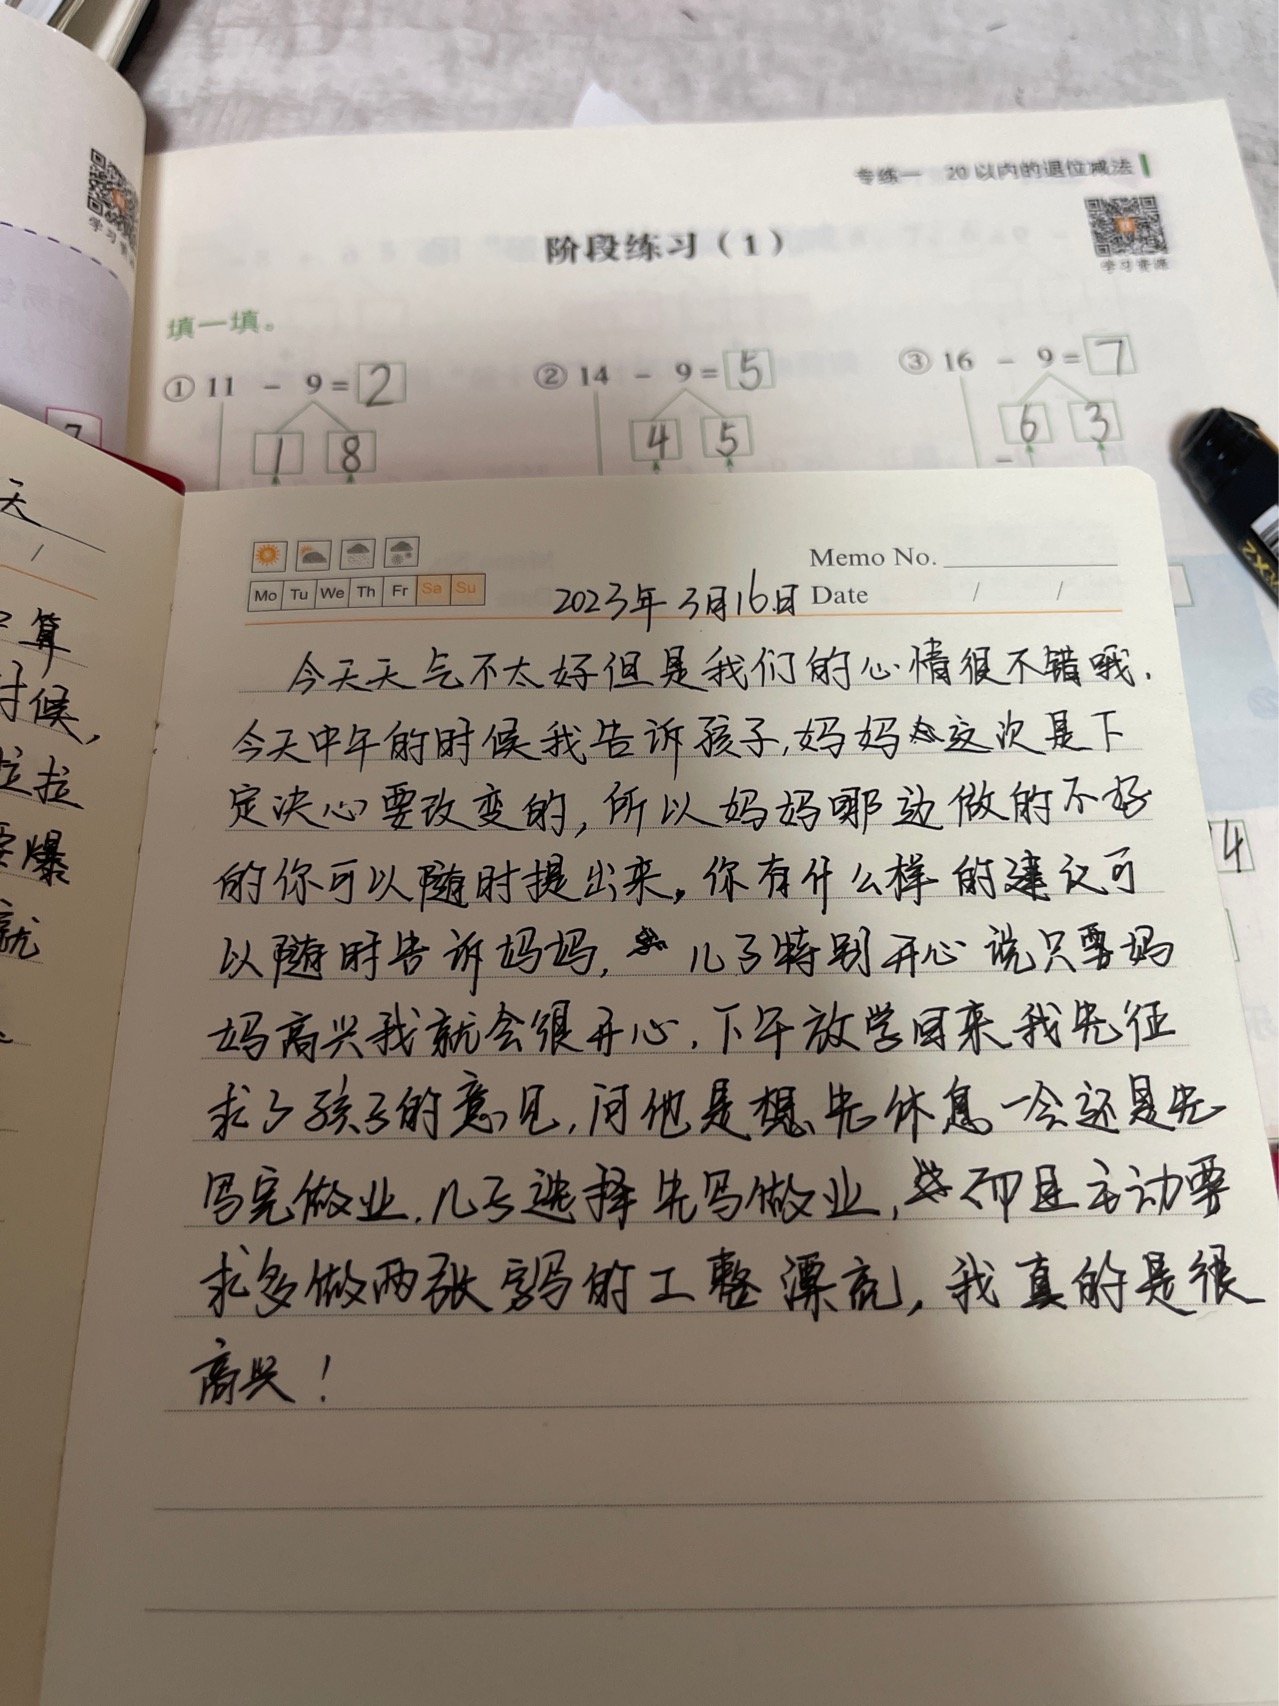 学习资源
专练一 20以内的退位减法
学习资源
阶段练习（1）
填一填。
①11 - 9=2
②14 - 9=5
③16 - 9=7
1 8
4 5
6 3
-
7
XX2
4
天
/
算
时候,
拉拉
要爆
就
Mo Tu We Th Fr Sa Su
Memo No.
2023年3月16日 Date / /
今天天气不太好但是我们的心情很不错哦.
今天中午的时候我告诉孩子,妈妈这次是下
定决心要改变的,所以妈妈哪边做的不好
的你可以随时提出来。你有什么样的建议可
以随时告诉妈妈, 儿子特别开心说只要妈
妈高兴我就会很开心.下午放学回来我先征
求了孩子的意见,问他是想先休息一会还是先
写完做业.儿子选择先写做业,而且主动要
求多做两张字写的工整漂亮,我真的是很
高兴!